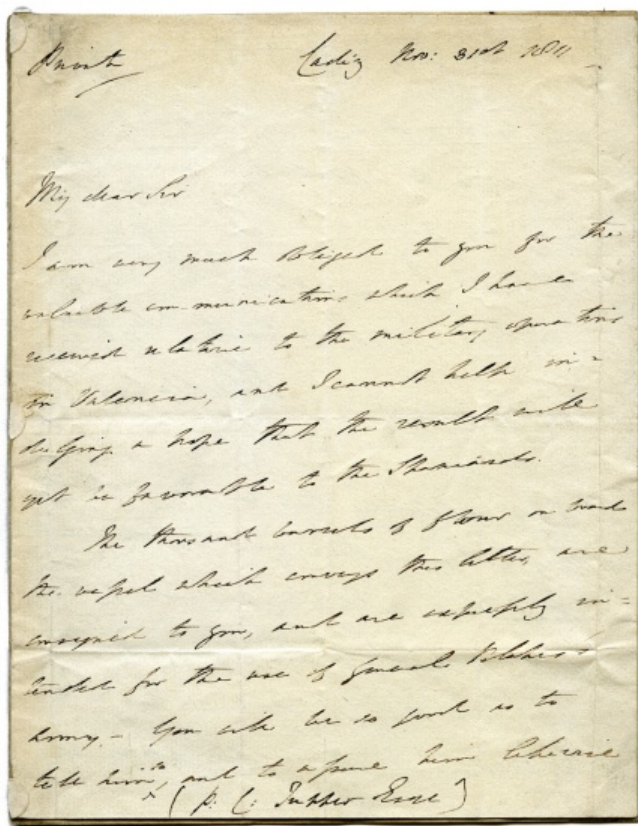 Private
Cadiz Nov: 31st 1811
My dear Sir
I am very much obliged to you for the
valuable communications which I have
received relative to the military operations
in Valencia, and I cannot help in=
dulging a hope that the result will
yet be favorable to the Spaniards.
The thousand barrels of flour on board
the vessel which conveys this letter, are
consigned to you, and are expressly in=
tended for the use of General Blake's
army - You will be so good as to
tell him so, and to assure him likewise
( P. C: Tupper Esqe )